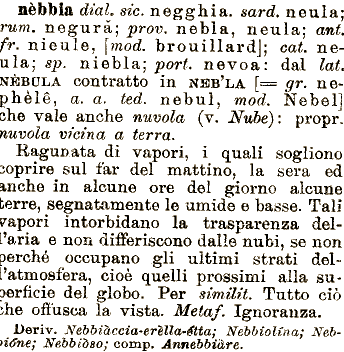 nèbbia dial. sic. negghia. sard. neula;
rum. negură; prov. nebla, neula; ant.
fr. nieule, [mod. brouillard]; cat. ne-
ula; sp. niebla; port. nevoa: dal lat.
NÈBULA contratto in NEB'LA [= gr. ne-
phélê, a. a. ted. nebul, mod. Nebel]
che vale anche nuvola (v. Nube): propr.
nuvola vicina a terra.
Ragunata di vapori, i quali sogliono
coprire sul far del mattino, la sera ed
anche in alcune ore del giorno alcune
terre, segnatamente le umide e basse. Tali
vapori intorbidano la trasparenza del-
l'aria e non differiscono dalle nubi, se non
perché occupano gli ultimi strati del-
l'atmosfera, cioè quelli prossimi alla su-
perficie del globo. Per similit. Tutto ciò
che offusca la vista. Metaf. Ignoranza.
Deriv. Nebbiàccia-erèlla-étta; Nebbiolína; Neb-
bióne; Nebbióso; comp. Annebbiàre.